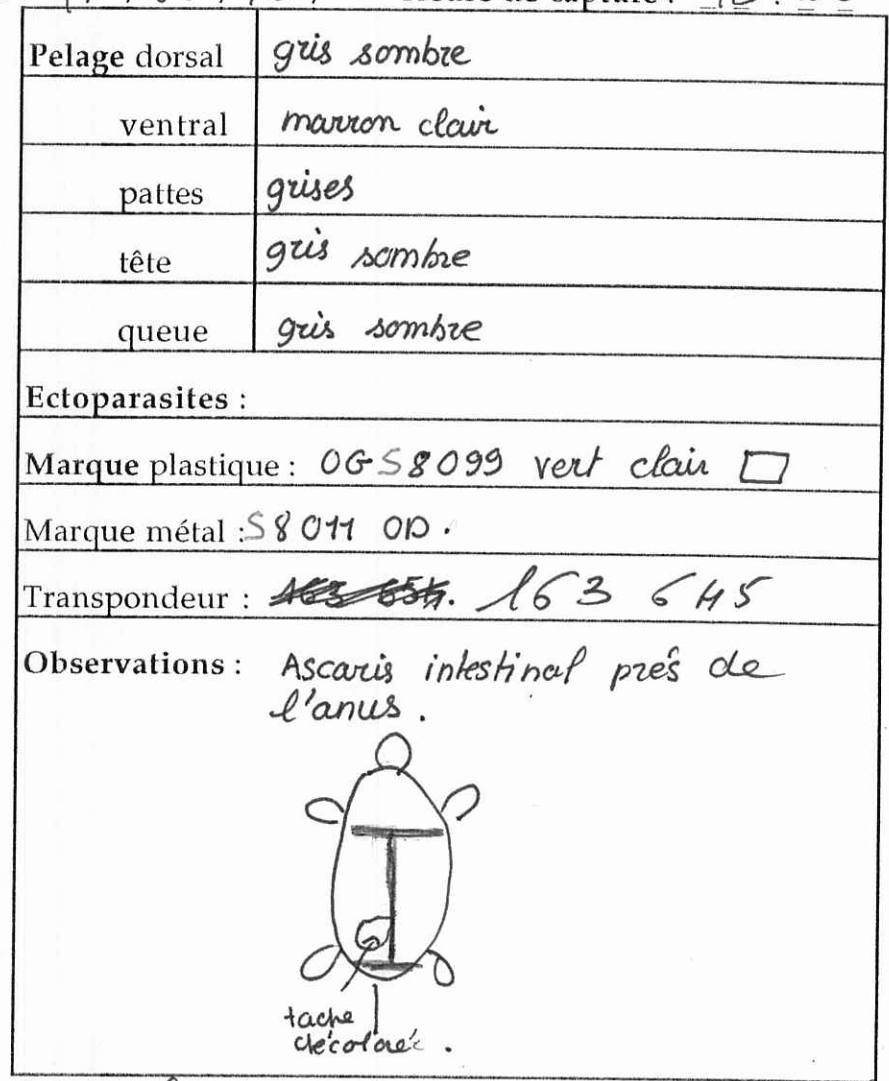 Pelage dorsal gris sombre
ventral marron clair
pattes grises
tête gris sombre
queue gris sombre
Ectoparasites :
Marque plastique : OGS8099 vert clair
Marque métal : S8011 OD.
Transpondeur : 163 645
Observations : Ascaris intestinal près de
l'anus.
tache
décolorée.